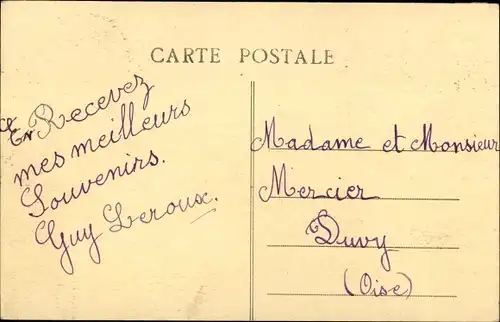 CARTE POSTALE
Recevez
mes meilleurs
Souvenirs.
Guy Leroux.
Madame et Monsieur
Mercier
Duvy
(Oise)